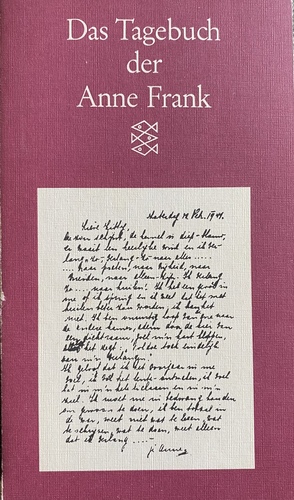 Das Tagebuch
der
Anne Frank
Zaterdag 12 Feb. 1944.
Lieve Kitty,
De zon schijnt, de hemel is diep-blauw,
er waait een heerlijke wind en ik ver-
lang - zo - verlang - zo - naar alles .....
.... naar praten, naar vrijheid, naar
vrienden, naar alleen-zijn. Ik verlang
zo .... naar huilen! Ik heb een gevoel in
me of ik spring en ik weet dat het met
huilen beter zou worden, ik kan het
niet. Ik ben onrustig, loop van de ene naar
de andere kamer, adem door de kier van
een dicht raam, voel m'n hart kloppen,
alsof het zegt: Vol doe toch eindelijk
aan m'n verlangens!
Ik geloof dat ik het voorjaar in me
voel, ik voel het lente-ontwaken, ik voel
het in m'n hele lichaam en in m'n
ziel. Ik moet me in bedwang houden
om gewoon te doen, ik ben totaal in
de war, weet niet wat te lezen, wat
te schrijven, wat te doen, weet alleen
dat ik verlang ....
je Anne